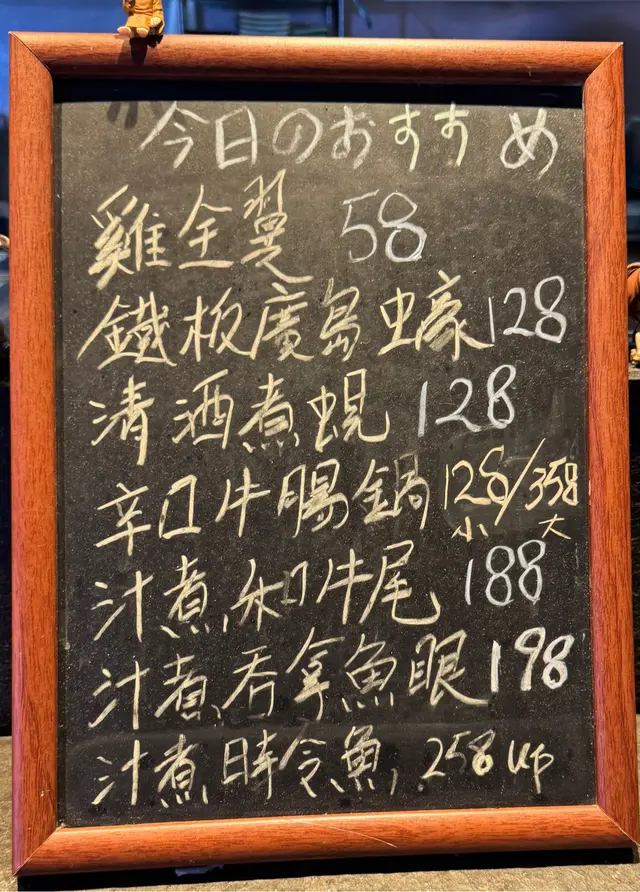 今日のおすすめ
雞全翼 58
鐵板廣島蠔 128
清酒煮蜆 128
辛口牛腸鍋 128/358
小 大
汁煮和牛尾 188
汁煮吞拿魚眼 198
汁煮時令魚 258 up